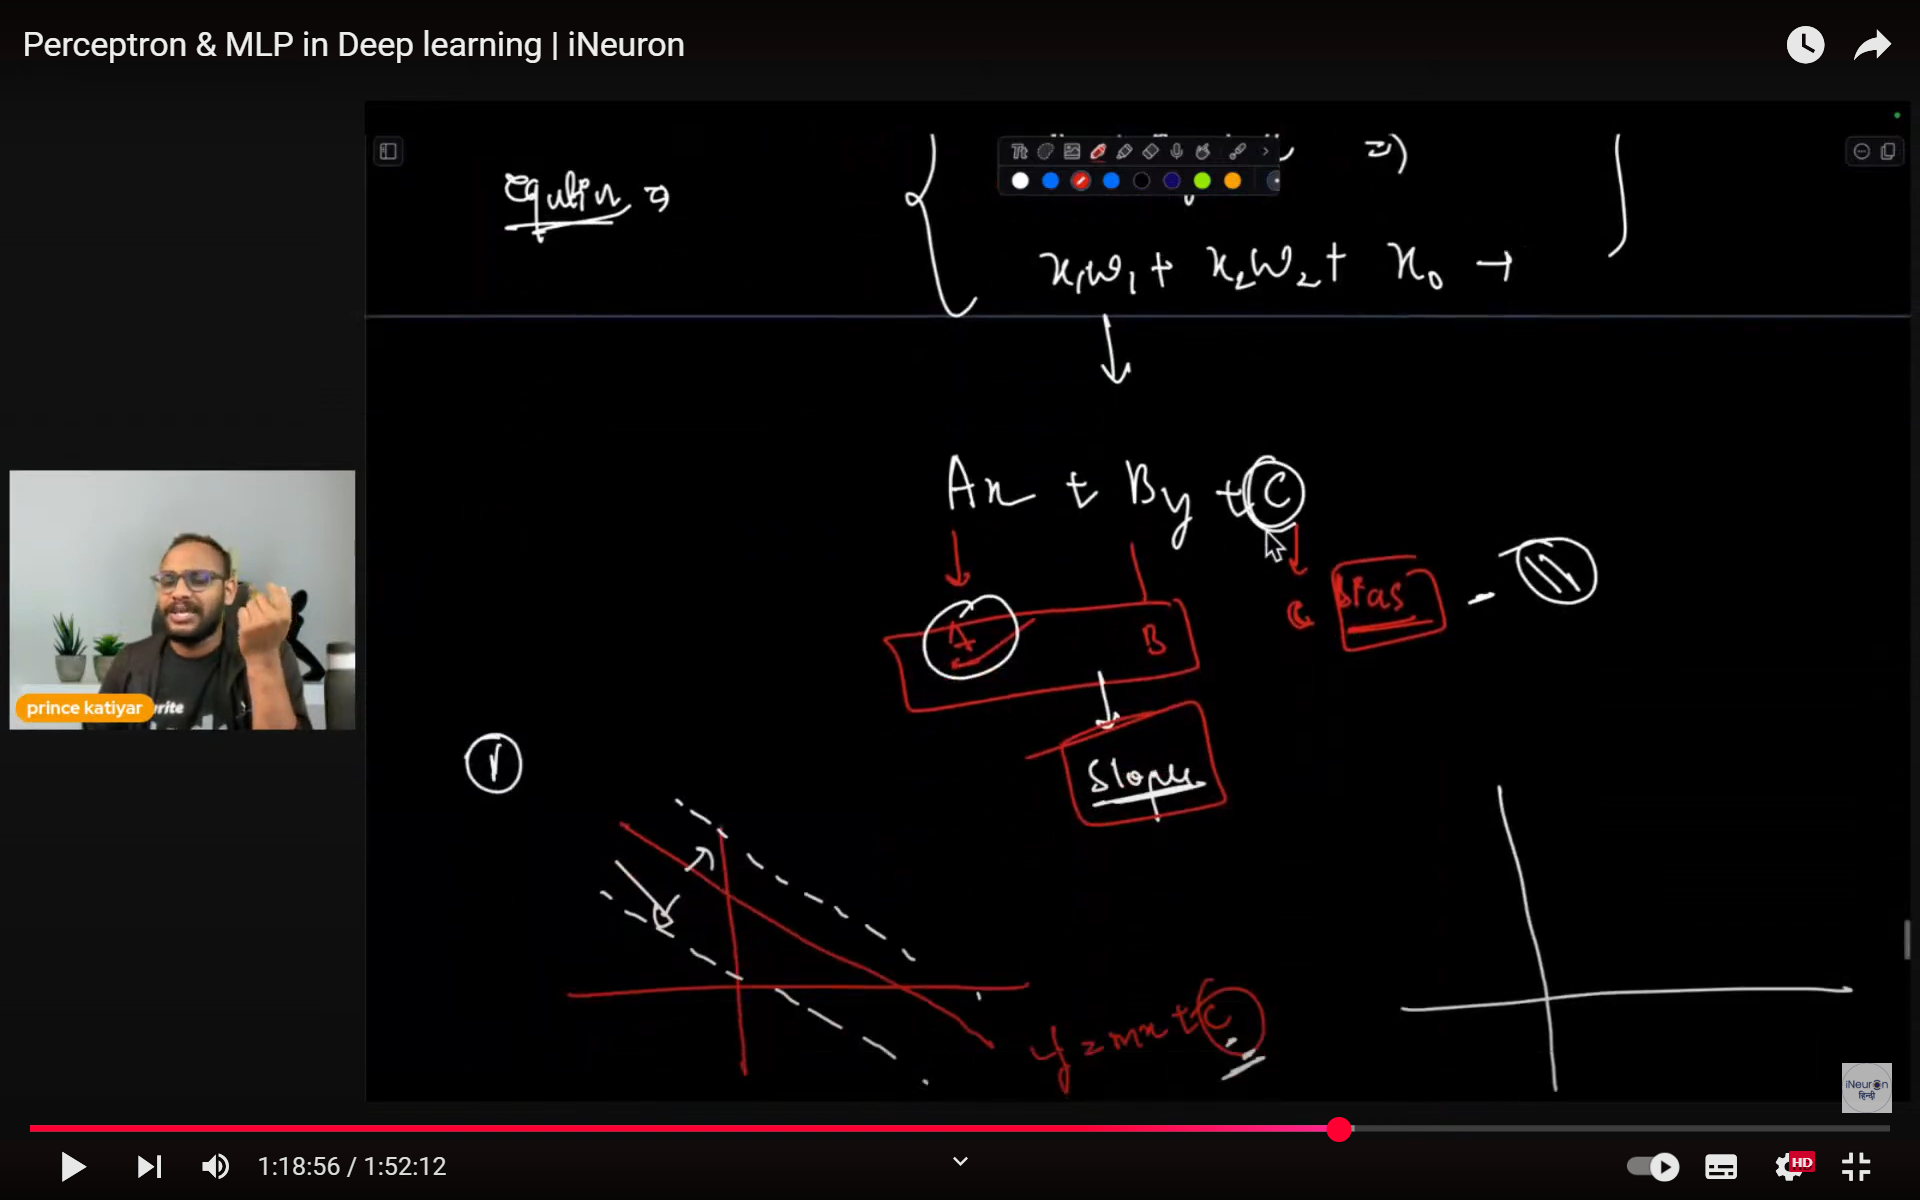 Perceptron & MLP in Deep learning | iNeuron
Eqution ⇒
x₁w₁ + x₂w₂ + x₀ →
Ax + By + C
A B C Bias - 11
Slope
1
y = mx + C
prince katiyar
rite
iNeuron
हिन्दी
1:18:56 / 1:52:12
HD